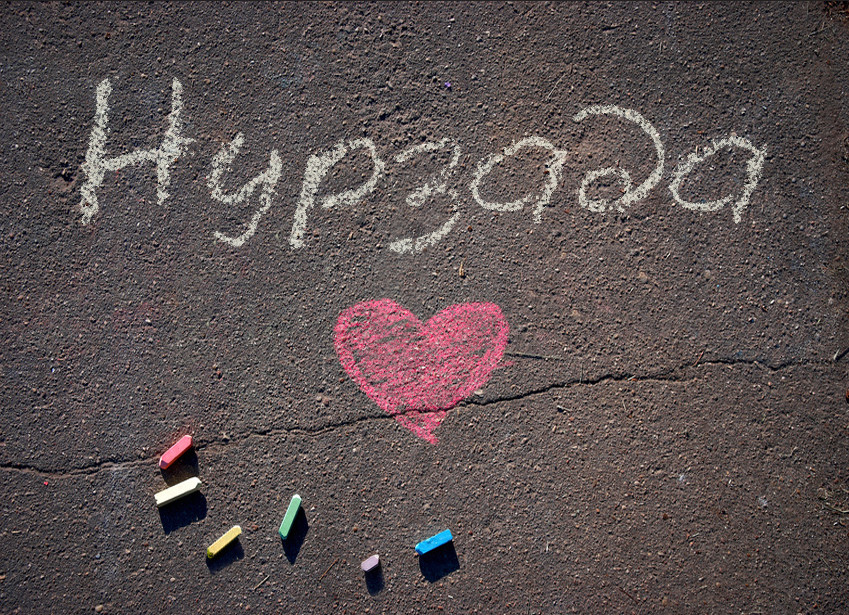 Нурзада